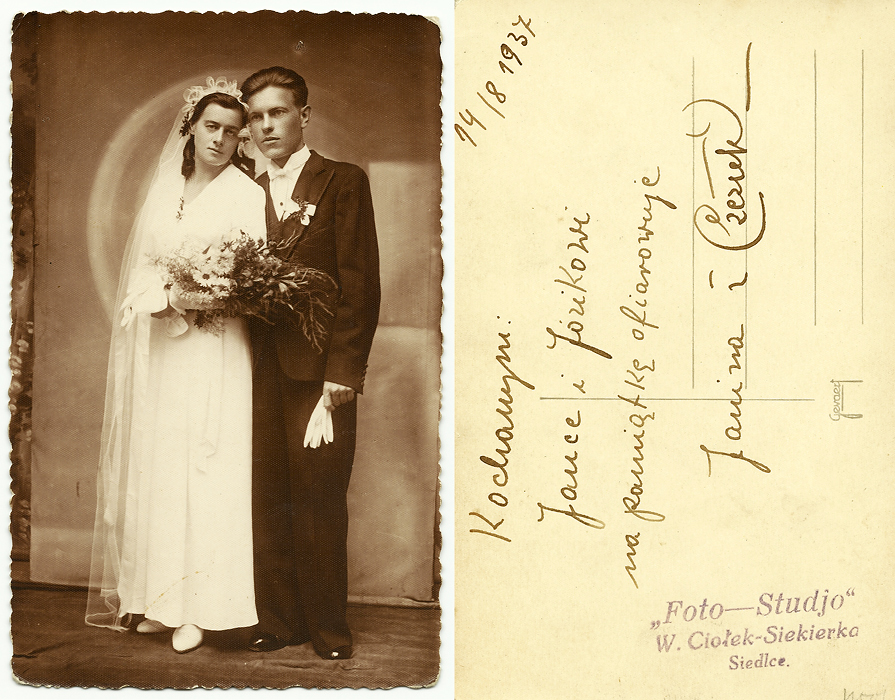 14/8 1937
Kochanym:
Jance i Józikowi
na pamiątkę ofiarowuje
Janina i Czesiek
Gevaert
„Foto—Studjo“
W. Ciołek-Siekierka
Siedlce.